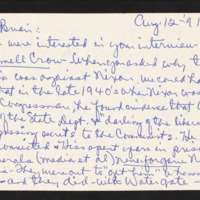 Aug-12-'91
Brian:
were interested in your interview
Crow. When you asked why t
was against Nixon, we could ha
that in the late 1940's when Nixon was
Congressman, he found evidence that
of the State Dept. & "darling of the libera
passing secrets to the Communists. He
convicted & Hiss spent 4 yrs in prison
erals (media et al) never forgave N
They meant to "get him" & h
and they did with Watergate